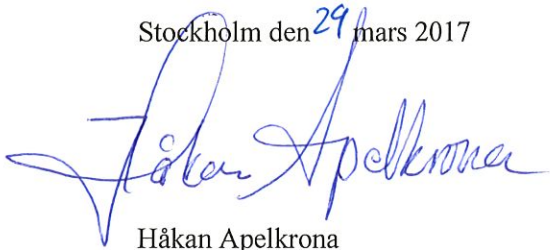 Stockholm den 29 mars 2017
Håkan Apelkrona
Håkan Apelkrona